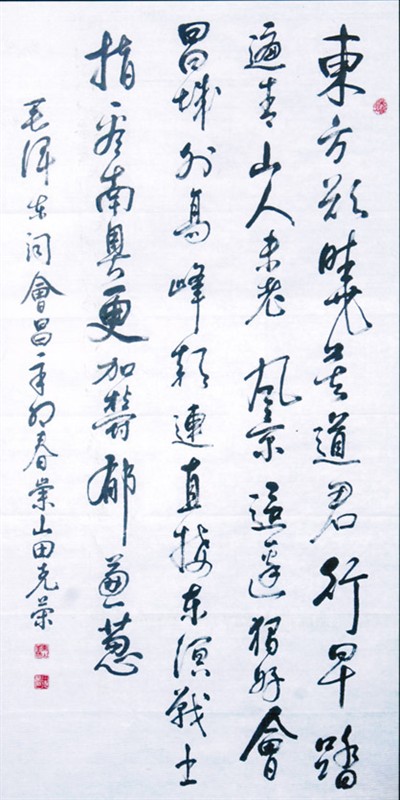 東方欲曉莫道君行早踏
遍青山人未老風景這邊獨好會
昌城外高峰顛連直接東溟戰士
指看南粵更加鬱郁蔥蔥
毛澤東詞會昌辛卯春山田克榮